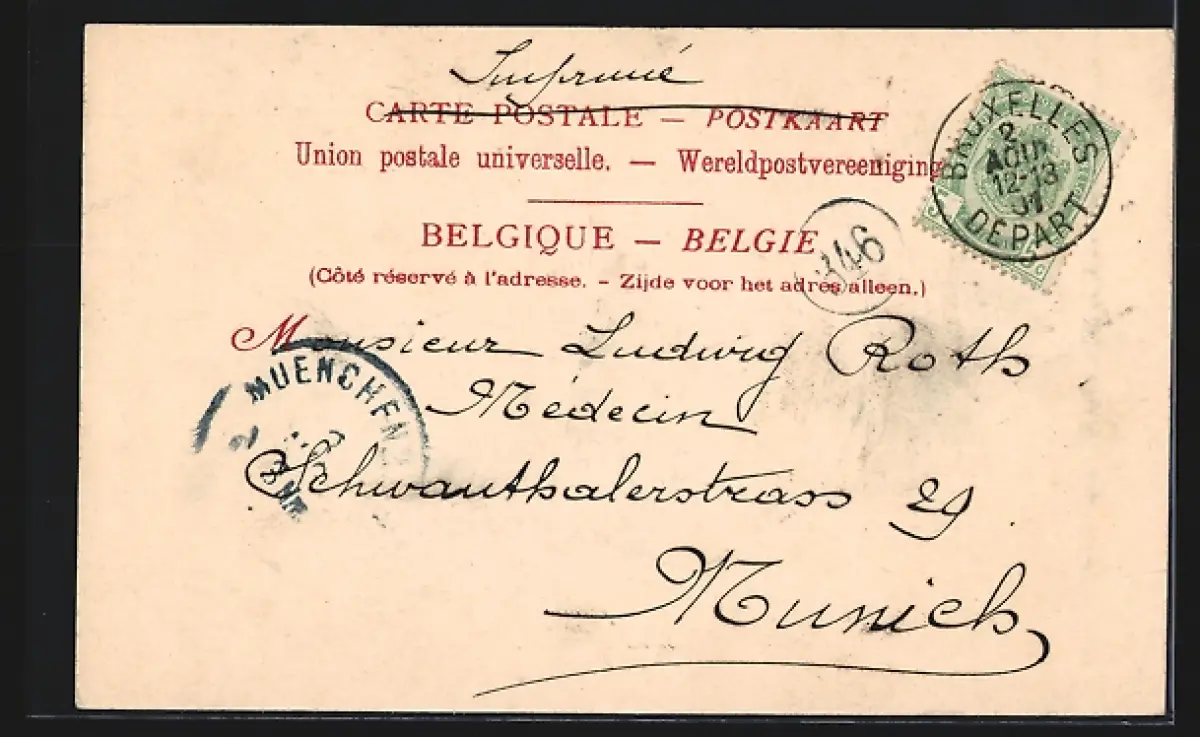 Imprimé
CARTE POSTALE — POSTKAART
Union postale universelle. — Wereldpostvereeniging
BELGIQUE — BELGIE
(Côté réservé à l'adresse. - Zijde voor het adres alleen.)
BRUXELLES
2
AOUT
12-13
DEPART
346
Monsieur Ludwig Roth
Médecin
Schwanthalerstrass 29
Munich
MUENCHEN